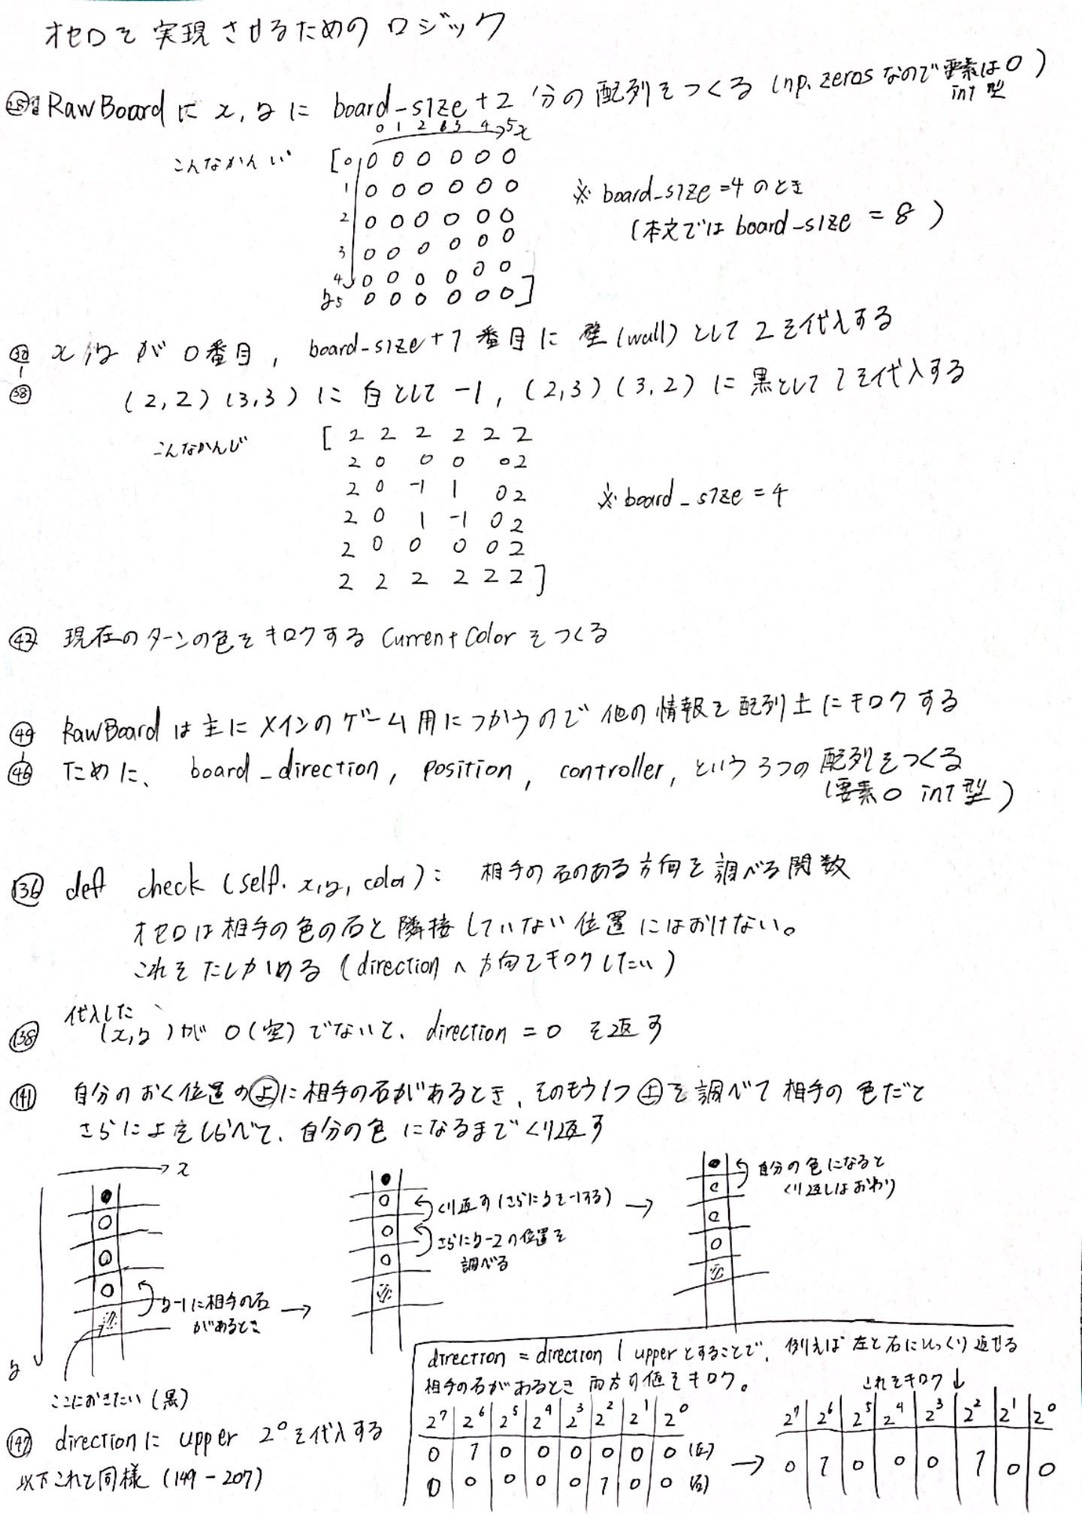 オセロを実現させるためのロジック
RawBoardに x, y に board-size+2 分の配列をつくる (np.zerosなので要素は0)
int型
0 1 2 3 4 5 x
こんなかんじ
[0 0 0 0 0 0 0
1 0 0 0 0 0 0
2 0 0 0 0 0 0
3 0 0 0 0 0 0
4 0 0 0 0 0 0
y5 0 0 0 0 0 0]
※ board-size=4 のとき
(本文では board-size = 8 )
㊳ x, y が 0番目, board-size+1 番目に 壁(wall) として 2を代入する
(2,2) (3,3) に 白として -1, (2,3) (3,2) に 黒として 1を代入する
こんなかんじ
[ 2 2 2 2 2 2
2 0 0 0 0 2
2 0 -1 1 0 2
2 0 1 -1 0 2
2 0 0 0 0 2
2 2 2 2 2 2 ]
※ board_size = 4
現在のターンの色をキロクする CurrentColor をつくる
㊹ RawBoard は主にメインのゲーム用につかうので 他の情報を配列上にキロクする
㊻ ために、 board_direction, position, controller, という3つの配列をつくる
(要素0 int型)
136 def check (self. x,y, color): 相手の石のある方向を調べる関数
オセロは相手の色の石と隣接していない位置にはおけない。
これをたしかめる (directionへ方向をキロクしたい)
代入した
138 (x,y) が 0(空) でないと、 direction = 0 を返す
141 自分のおく位置の上に相手の石があるとき、そのもう1つ上を調べて相手の色だと
さらに上をしらべて、自分の色になるまでくり返す
x
y
y-1に相手の石
があるとき
→
ここにおきたい (黒)
くり返す (さらにy-1する)
さらにy-2の位置を
調べる
→
自分の色になると
くり返しはおわり
147 direction に upper 2⁰を代入する
以下これと同様 (149-207)
direction = direction | upper とすることで、例えば左と右にひっくり返せる
相手の石があるとき 両方の値をキロク。
これをキロク↓
2⁷ 2⁶ 2⁵ 2⁴ 2³ 2² 2¹ 2⁰
0 1 0 0 0 0 0 0 (左)
0 0 0 0 0 1 0 0 (右)
→
2⁷ 2⁶ 2⁵ 2⁴ 2³ 2² 2¹ 2⁰
0 1 0 0 0 1 0 0